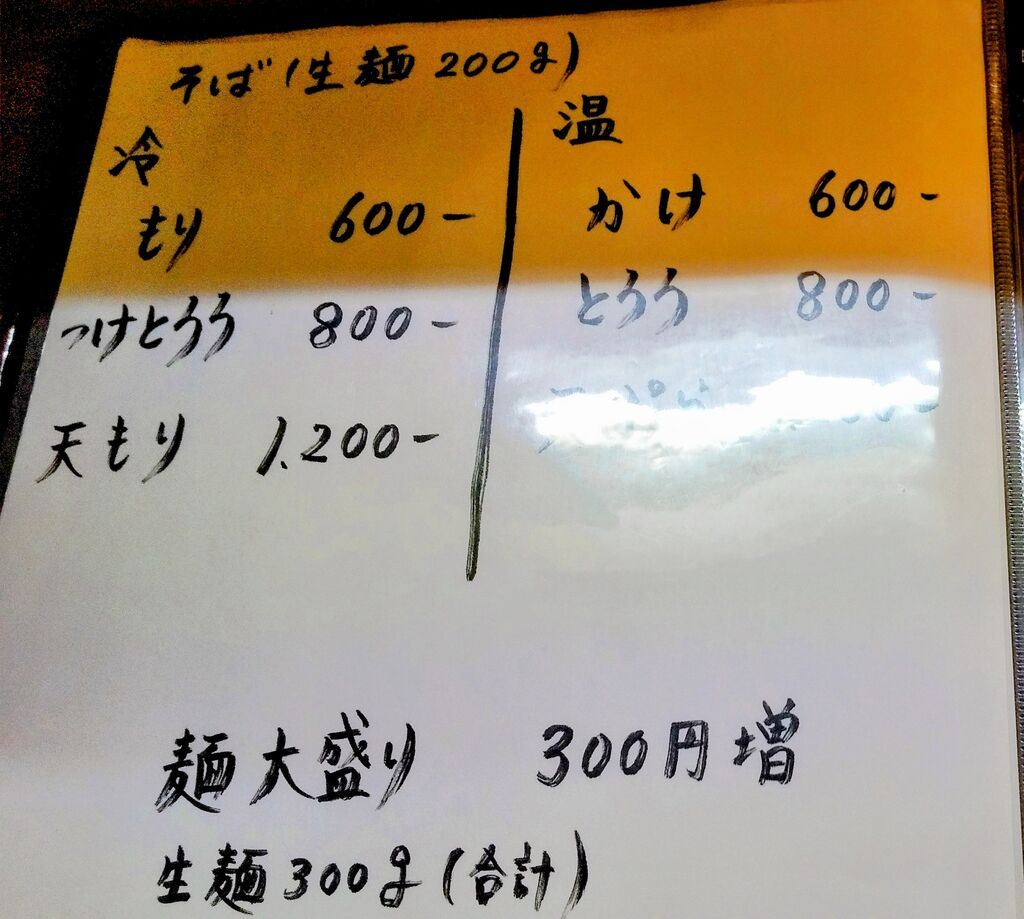 そば(生麺 200g)
冷
もり 600-
つけとろろ 800-
天もり 1,200-
温
かけ 600-
とろろ 800-
麺大盛り 300円増
生麺300g(合計)